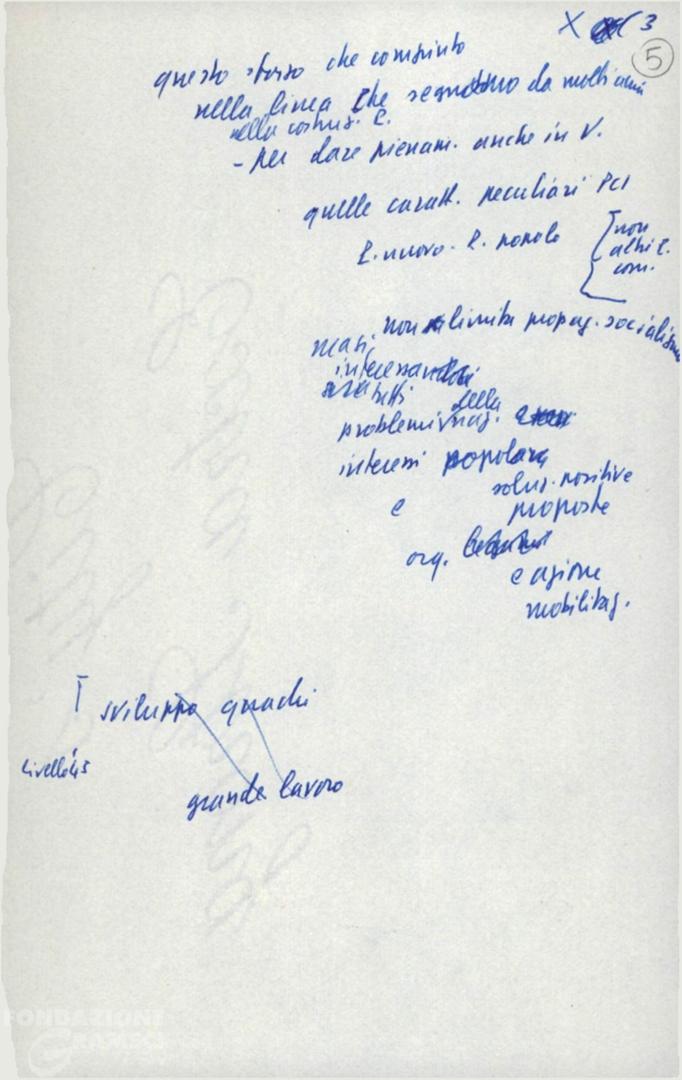 X 3
5
questo sforzo che compiuto
nella linea che seguiamo da molti anni
nella costruz. P.
- per dare pienam. anche in V.
quelle caratt. peculiari PCI
P. nuovo - P. popolo
non
altri P.
com.
non limita propag. socialismo
ma si
interessa
tutti
problemi della naz.
interessi popolari
soluz. positive
e proposte
org.
e azione
mobilitaz.
I sviluppo quadri
livello 45
grande lavoro
FONDAZIONE
GRAMSCI